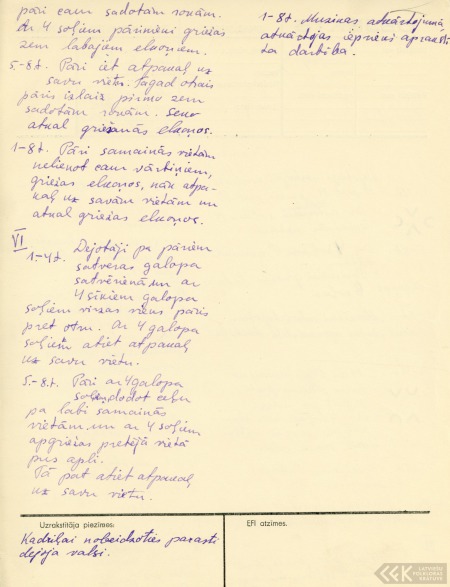 pāri caur sadotām rokām.
Ar 4 soļiem pārimēni griežas
zem labajiem elkoņiem.
5.-8t. Pāri iet atpakaļ uz
savu vietu. Tagad otrais
pāris izlaiž pirmo zem
sadotām rokām. Seko
atkal griešanās elkoņos.
1-8t. Pāri samainās vietām
nelienot caur vārtiņiem,
griežas elkoņos, nāk atpa-
kaļ uz savām vietām un
atkal griežas elkoņos.
VI
1.-4t. Dejotāji pa pāriem
satveras galopa
satvērienā un ar
4 sīkiem galopa
soļiem virzas viens pāris
pret otru. Ar 4 galopa
soļiem atiet atpakaļ
uz savu vietu.
5.-8t. Pāri ar 4 galopa
soļiem dodot ceļu
pa labi samainās
vietām un ar 4 soļiem
apgriežas pretējā vietā
pus apli.
Tā pat atiet atpakaļ
uz savu vietu.
1-8t. Mūzikas atkārtojumā
atkārtojas iepriekš aprakstī-
tā darbība.
Uzrakstītāja piezīmes:
Kadriļai nobeidzoties parasti
dejoja valsi.
EFI atzīmes.
LATVIEŠU
FOLKLORAS
KRĀTUVE